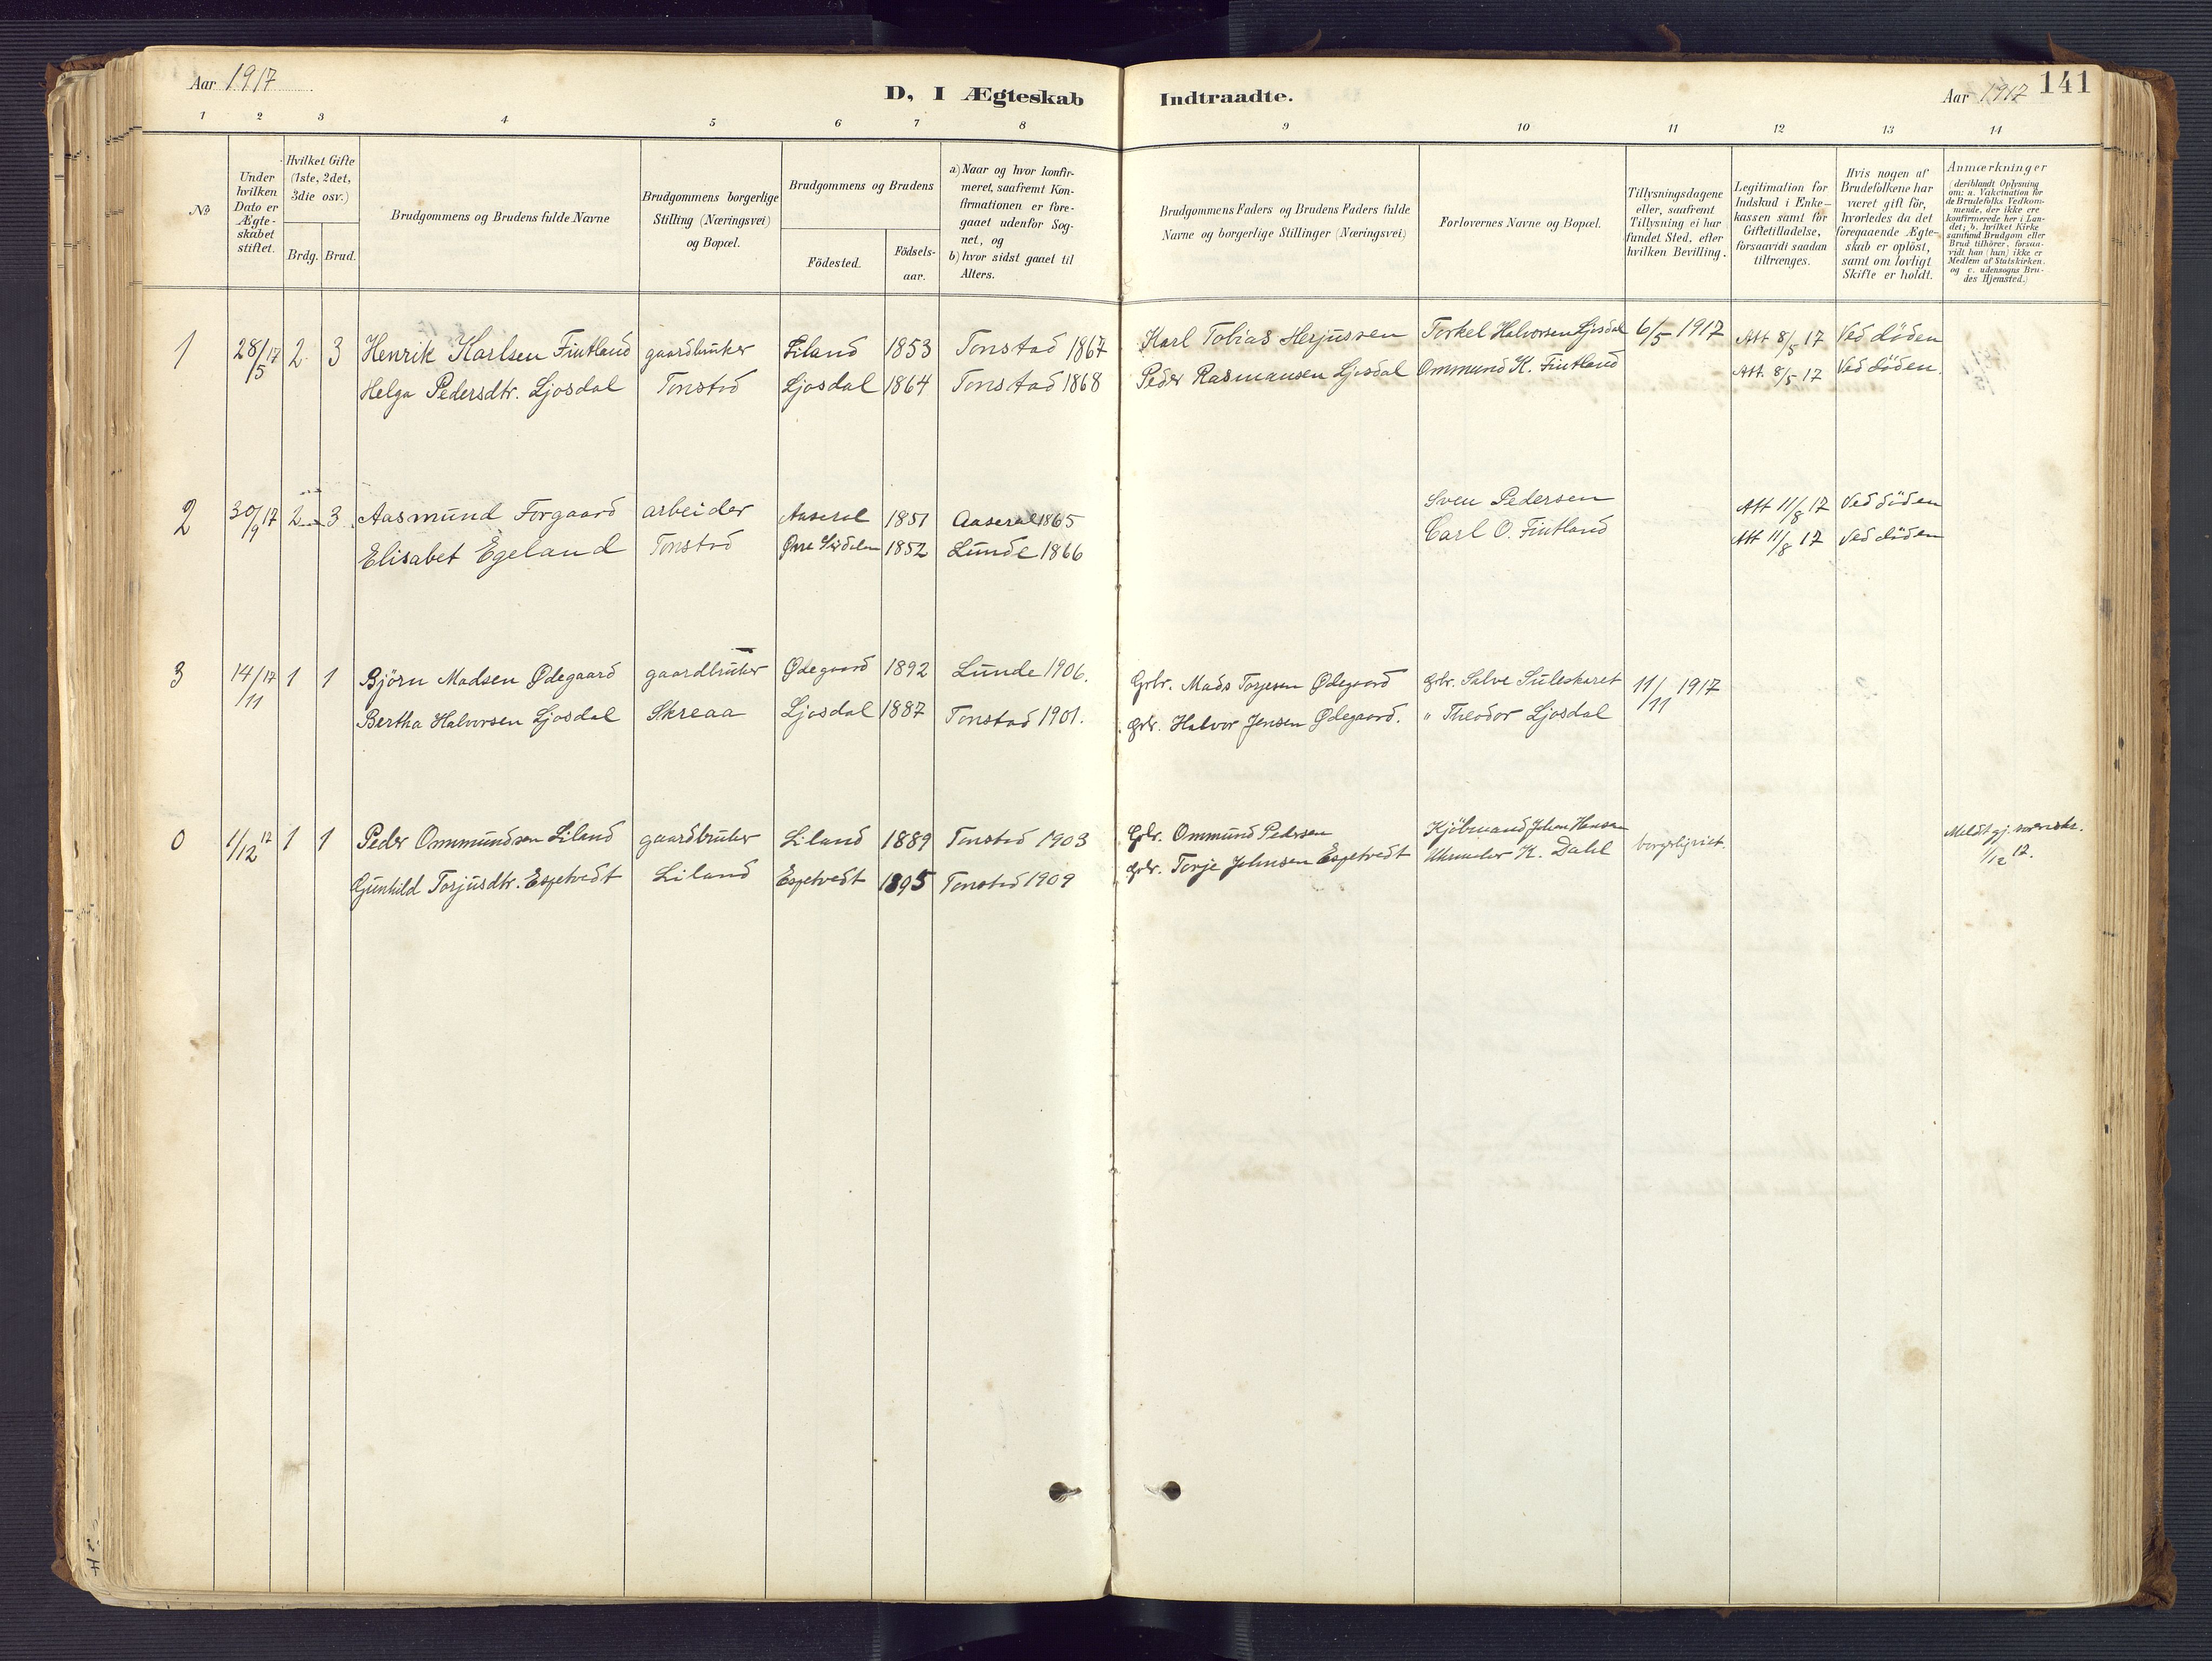 Aar 1917
D, I Ægteskab Indtraadte.
Aar 1917 141
1 2 3 4 5 6 7 8 9 10 11 12 13 14
No
Under hvilken Dato er Ægte-skabet stiftet.
Hvilket Gifte (1ste, 2det, 3die osv.)
Brdg. Brud.
Brudgommens og Brudens fulde Navne
Brudgommens borgerlige Stilling (Næringsvei) og Bopæl.
Brudgommens og Brudens
Födested. Födsels-aar.
a) Naar og hvor konfir-meret, saafremt Kon-firmationen er fore-gaaet udenfor Sog-net, og
b) hvor sidst gaaet til Alters.
Brudgommens Faders og Brudens Faders fulde Navne og borgerlige Stillinger (Næringsvei)
Forlovernes Navne og Bopæl.
Tillysningsdagene eller, saafremt Tillysning ei har fundet Sted, efter hvilken Bevilling.
Legitimation for Indskud i Enke-kassen samt for Giftetilladelse, forsaavidt saadan tiltrænges.
Hvis nogen af Brudefolkene har været gift för, hvorledes da det foregaaende Ægte-skab er oplöst, samt om lovligt Skifte er holdt.
Anmærkninger (deriblandt Oplysning om: a. Vakcination for de Brudefolks Vedkom-mende, der ikke ere konfirmerede her i Lan-det; b. hvilket Kirke-samfund Brudgom eller Brud tilhører, forsaa-vidt han (hun) ikke er Medlem af Statskirken. og c. udensogns Bru-des Hjemsted.)
1 28/5 17 2 3 Henrik Karlsen Fintland gaardbruker Liland 1853 Tonstad 1867 Karl Tobias Herjussen Torkel Halvorsen Ljosdal 6/5 1917 Att 8/5 17 Ved döden
Helga Pedersdtr. Ljosdal Tonstad Ljosdal 1864 Tonstad 1868 Peder Rasmussen Ljosdal Ommund K. Fintland Att. 8/5 17 Ved döden.
2 30/9 17 2 3 Aasmund Forgaard arbeider Aaseral 1851 Aaseral 1865 Sven Pedersen Att 11/8 17 Ved döden
Elisabet Egeland Tonstad Øvre 1852 Lunde 1866 Carl O. Fintland Att 11/8 17 Ved döden
3 14/11 17 1 1 Björn Madsen Ødegaard gaardbruker Ødegaard 1892 Lunde 1906. Grbr. Mads Torjesen Ødegaard grbr. Salve Suleskaret 11/11 1917
Bertha Halvorsen Ljosdal Skreaa Ljosdal 1887 Tonstad 1901. grbr. Halvor Jensen Ødegaard. " Theodor Ljosdal
0 1/12 17 1 1 Peder Ommundsen Liland gaardbruker Liland 1889 Tonstad 1903 Grbr. Ommund Pedersen Kjöbmand Johan Hansen borgerligviet. Meldt gj.
Gunhild Torjusdtr. Espetvedt Liland Espetvedt 1895 Tonstad 1909 grbr. Torje Johnsen Espetvedt Uhrmaker K. Dahl 1/12 17.